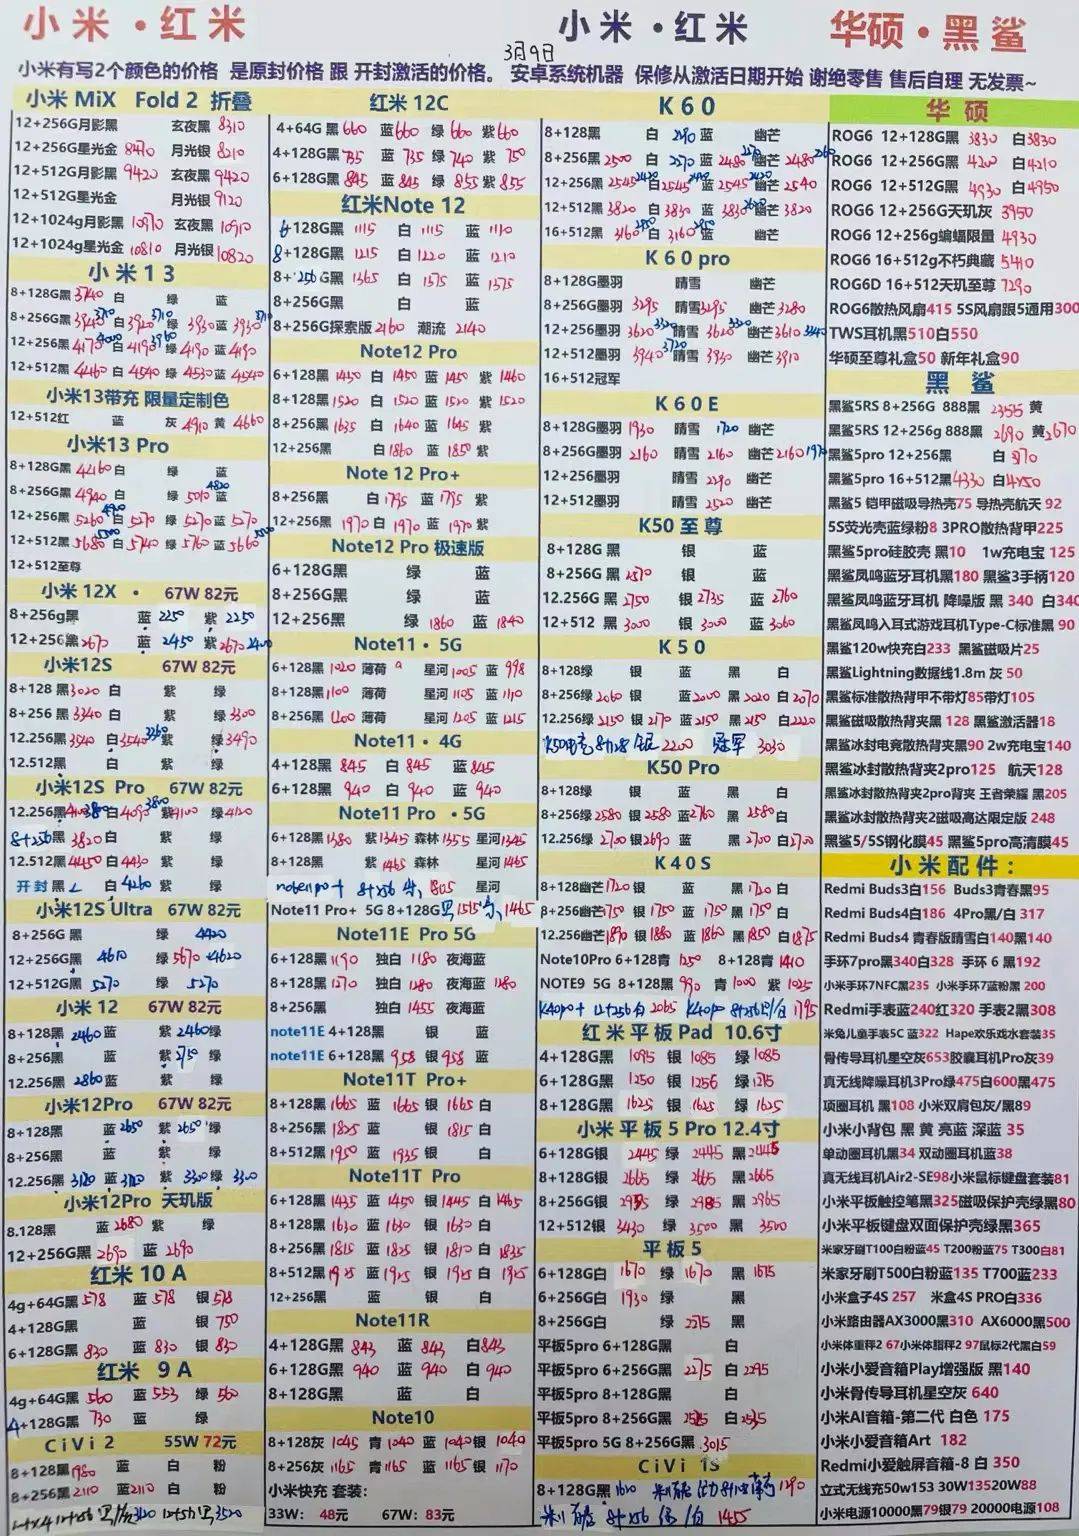 小米·红米
小米·红米
华硕·黑鲨
3月9日
小米有写2个颜色的价格 是原封价格 跟 开封激活的价格。 安卓系统机器 保修从激活日期开始 谢绝零售 售后自理 无发票~
小米 MiX Fold 2 折叠
12+256G月影黑 玄夜黑 8310
12+256G星光金 8470 月光银 8210
12+512G月影黑 9420 玄夜黑 9420
12+512G星光金 月光银 9120
12+1024g月影黑 10970 玄夜黑 10910
12+1024g星光金 10810 月光银 10820
小米13
8+128G黑 3740 白 绿 蓝
8+256G黑 3940 白 3920 绿 3930 蓝 3930
12+256黑 4170 白 4190 绿 4190 蓝 4190
12+512黑 4460 白 4540 绿 4530 蓝 4540
小米13带充 限量定制色
12+512红 蓝 灰 4910 黄 4660
小米13 Pro
8+128G黑 白 绿 蓝
8+256G黑 4940 白 绿 5010 蓝 4820
12+256黑 5260 白 5270 绿 5270 蓝 5270
12+512黑 5680 白 5740 绿 5760 蓝 5660
12+512至尊
小米 12X · 67W 82元
8+256g黑 蓝 2250 紫 2250
12+256黑 2670 蓝 2450 紫 2670 2400
小米12S 67W 82元
8+128 黑 3020 白 紫 绿
8+256 黑 3340 白 紫 绿 3300
12.256黑 3540 白 3540 3360 紫 绿 3490
12.512黑 白 紫 绿
小米12S Pro 67W 82元
12.256黑 白 4090 紫 4100 绿 4120
8+256黑 3820 白 紫 绿
12.512黑 4450 白 4430 紫 绿
开封 黑 白 4260 紫 绿
小米12S Ultra 67W 82元
8+256G 黑 绿 4420
12+256G黑 4610 绿 5670 4620
12+512G黑 5270 绿 5270
小米 12 67W 82元
8+128黑 2460 蓝 紫 2460 绿
8+256黑 蓝 紫 2750 绿
12.256黑 2860 蓝 紫 绿
小米12Pro 67W 82元
8+128黑 蓝 2650 紫 2650 绿
8+256黑 蓝 紫 绿
12.256黑 3120 蓝 3120 紫 3300 绿 3300
小米12Pro 天玑版
8.128黑 蓝 2680 紫 绿
12+256G黑 2690 蓝 2690
红米 10 A
4g+64G黑 578 蓝 578 银 578
4+128G黑 蓝 银 750
6+128G黑 830 蓝 830 银 830
红米 9 A
4g+64G黑 560 蓝 553 绿 560
4+128G黑 730 蓝 绿
CiVi 2 55W 72元
8+128黑 1980 蓝 白 粉
8+256黑 2110 蓝 2110 白 粉
红米 12C
4+64G 黑 660 蓝 660 绿 660 紫 660
4+128G 黑 735 蓝 735 绿 740 紫 750
6+128G 黑 845 蓝 845 绿 855 紫 855
红米Note 12
6+128G黑 1115 白 1115 蓝 1110
8+128G黑 1215 白 1220 蓝 1210
8+256G黑 1365 白 1375 蓝 1375
8+256G黑 白 蓝
8+256G探索版 2160 潮流 2140
Note12 Pro
6+128黑 1450 白 1450 蓝 1450 紫 1460
8+128黑 1520 白 1520 蓝 1520 紫 1520
8+256黑 1635 白 1640 蓝 1645 紫
12+256黑 白 1860 蓝 1850 紫
Note 12 Pro+
8+256黑 白 1795 蓝 1795 紫
12+256黑 1970 白 1970 蓝 1970 紫
Note12 Pro 极速版
6+128G黑 绿 蓝
8+256G黑 绿 蓝
12+256黑 绿 1860 蓝 1840
Note11 · 5G
6+128黑 1020 薄荷 星河 1005 蓝 998
8+128黑 1100 薄荷 星河 1105 蓝 1110
8+256黑 1200 薄荷 星河 1205 蓝 1215
Note11 · 4G
4+128黑 845 白 845 蓝 845
6+128黑 940 白 940 蓝 940
Note11 Pro · 5G
6+128黑 1380 紫 1345 森林 1355 星河 1345
8+128黑 紫 1465 森林 星河 1465
note11pro+ 8+256 1805 星河
Note11 Pro+ 5G 8+128G黑 1515 1465
Note11E Pro 5G
6+128黑 1190 独白 1180 夜海蓝
8+128黑 1270 独白 1280 夜海蓝 1280
8+256黑 独白 1455 夜海蓝
note11E 4+128黑 银 蓝
note11E 6+128黑 958 银 958 蓝
Note11T Pro+
8+128黑 1665 蓝 1665 银 1665 白
8+256黑 1825 蓝 银 1815 白
8+512黑 1950 蓝 1935 银 白
Note11T Pro
6+128黑 1435 蓝 1450 银 1445 白 1465
8+128黑 1630 蓝 1630 银 1630 白
8+256黑 1815 蓝 1825 银 1810 白 1835
8+512黑 1925 蓝 1925 银 1925 白 1925
12+256黑 蓝 银 白
Note11R
4+128G黑 843 蓝 843 白 843
6+128G黑 940 蓝 940 白 940
8+128G黑 蓝 白
Note10
8+128灰 1045 青 1040 蓝 1040 银 1040
8+256灰 1165 青 1165 蓝 1165 银 1170
小米快充 套装：
33W： 48元 67W：83元
K60
8+128黑 白 蓝 幽芒
8+256黑 2500 白 2570 蓝 2485 幽芒 2480
12+256黑 2545 白 2545 蓝 2545 幽芒 2540
12+512黑 3820 白 3830 蓝 3830 幽芒 3820
16+512黑 3160 白 3160 蓝 幽芒
K60 pro
8+128G墨羽 晴雪 幽芒
8+256G墨羽 3295 晴雪 3295 幽芒 3280
12+256墨羽 3620 晴雪 3620 幽芒 3610
12+512墨羽 3940 晴雪 3930 幽芒 3910
16+512冠军
K60E
8+128G墨羽 1930 晴雪 1720 幽芒
8+256G墨羽 2160 晴雪 2160 幽芒 2160
12+256墨羽 晴雪 2290 幽芒
12+512墨羽 晴雪 2520 幽芒
K50 至尊
8+128G 黑 银 蓝
8+256G 黑 2570 银 蓝
12.256G 黑 2750 银 2735 蓝 2760
12+512 黑 3000 银 3000 蓝 3060
K50
8+128绿 银 蓝 黑 白
8+256绿 2060 银 蓝 2000 黑 2020 白 2070
12.256绿 2150 银 2170 蓝 2150 黑 2150 白 2220
K50电竞 8+128 银 2200 冠军 3030
K50 Pro
8+128绿 银 蓝 黑 白
8+256绿 2580 银 2580 蓝 2760 黑 2580 白
12.256绿 2700 银 2690 蓝 黑 2700 白 2700
K40S
8+128幽芒 1720 银 蓝 黑 1720 白
8+256幽芒 1750 银 1750 蓝 1750 黑 1750 白
12.256幽芒 1890 银 1880 蓝 1860 黑 1850 白 1875
Note10Pro 6+128青 1250 8+128青 1410
NOTE9 5G 8+128黑 990 青 1000 紫 1025
K40pro+ 12+256白 2065 K40pro 8+256黑/白 1795
红米平板Pad 10.6寸
4+128G黑 1095 银 1085 绿 1085
6+128G黑 1250 银 1256 绿 1215
8+128G黑 1625 银 1625 绿 1625
小米平板5 Pro 12.4寸
6+128G银 2445 绿 2445 黑 2445
8+128G银 2665 绿 2665 黑 2665
8+256G银 绿 2985 黑 2965
12+512银 3430 绿 3500 黑 3500
平板5
6+128G白 1670 绿 1670 黑 1675
6+256G白 1930 绿 黑
8+256G白 绿 2215 黑
平板5pro 6+128G黑 白
平板5pro 6+256G黑 2275 白 2295
平板5pro 8+128G黑 白
平板5pro 8+256G黑 2525 白 2535
平板5pro 5G 8+256G黑 3015
CiVi 1S
8+128G黑 1290
8+256 /白 1455
华硕
ROG6 12+128G黑 3830 白3830
ROG6 12+256G黑 4200 白4210
ROG6 12+512G黑 4930 白4950
ROG6 12+256G天玑灰 3950
ROG6 12+256g蝙蝠限量 4930
ROG6 16+512g不朽典藏 5410
ROG6D 16+512天玑至尊 7290
ROG6散热风扇415 5S风扇跟5通用300
TWS耳机黑510白550
华硕至尊礼盒50 新年礼盒90
黑鲨
黑鲨5RS 8+256G 888黑 黄
黑鲨5RS 12+256g 888黑 2690 黄2670
黑鲨5pro 12+256黑 白
黑鲨5pro 16+512黑4330 白4450
黑鲨5 铠甲磁吸导热壳75 导热壳航天 92
5S荧光壳蓝绿粉8 3PRO散热背甲225
黑鲨5pro硅胶壳 黑10 1w充电宝 125
黑鲨凤鸣蓝牙耳机黑180 黑鲨3手柄120
黑鲨凤鸣蓝牙耳机 降噪版 黑 340 白340
黑鲨凤鸣入耳式游戏耳机Type-C标准黑 90
黑鲨120w快充白233 黑鲨磁吸片25
黑鲨Lightning数据线1.8m 灰 50
黑鲨标准散热背甲不带灯85带灯105
黑鲨磁吸散热背夹黑 128 黑鲨激活器18
黑鲨冰封电竞散热背夹黑90 2w充电宝140
黑鲨冰封散热背夹2pro125 航天128
黑鲨冰封散热背夹2pro背夹 王者荣耀 黑205
黑鲨冰封散热背夹2磁吸高达限定版 248
黑鲨5/5S钢化膜45 黑鲨5pro高清膜45
小米配件：
Redmi Buds3白156 Buds3青春黑95
Redmi Buds4白186 4Pro黑/白 317
Redmi Buds4 青春版晴雪白140黑140
手环7pro黑340白328 手环 6 黑192
小米手环7NFC黑235 小米手环7蓝粉黑 200
Redmi手表蓝240红320 手表2黑308
米兔儿童手表5C 蓝322 Hape欢乐戏水套装35
骨传导耳机星空灰653胶囊耳机Pro灰39
真无线降噪耳机3Pro绿475白600黑475
项圈耳机 黑108 小米双肩包灰/黑89
小米小背包 黑 黄 亮蓝 深蓝 35
单动圈耳机黑34 双动圈耳机蓝38
真无线耳机Air2-SE98小米鼠标键盘套装81
小米平板触控笔黑325磁吸保护壳绿黑80
小米平板键盘双面保护壳绿黑365
米家牙刷T100白粉蓝45 T200粉蓝75 T300白81
米家牙刷T500白粉蓝135 T700蓝233
小米盒子4S 257 米盒4S PRO白336
小米路由器AX3000黑310 AX6000黑500
小米体重秤2 67小米体脂秤2 97鼠标2代黑白59
小米小爱音箱Play增强版 黑140
小米骨传导耳机星空灰 640
小米AI音箱-第二代 白色 175
小米小爱音箱Art 182
Redmi小爱触屏音箱-8 白 350
立式无线充50w153 30W13520W88
小米电源10000黑79银79 20000电源108